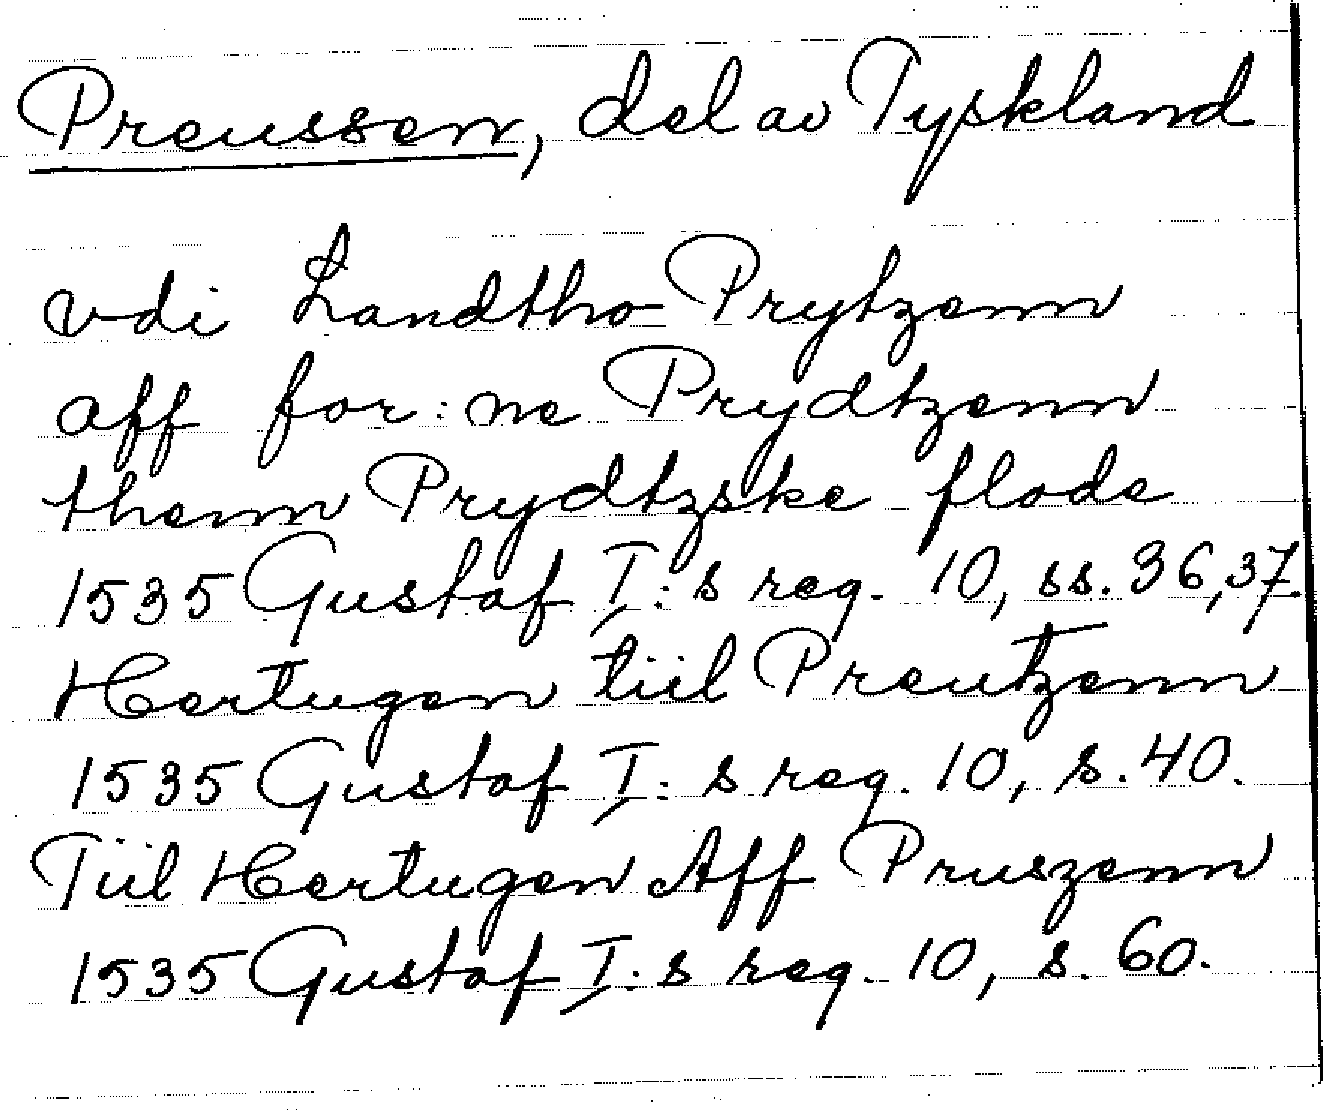 Preussen, del av Tyskland
vdi Landtho Prytzenn
aff for: ne Prydtzenn
thenn Prydtzske flode
1535 Gustaf I:s reg. 10, ss. 36, 37.
Hertugen tiil Preutzenn
1535 Gustaf I:s reg. 10, s. 40.
Tiil Hertugen Aff Pruszenn
1535 Gustaf I:s reg. 10, s. 60.